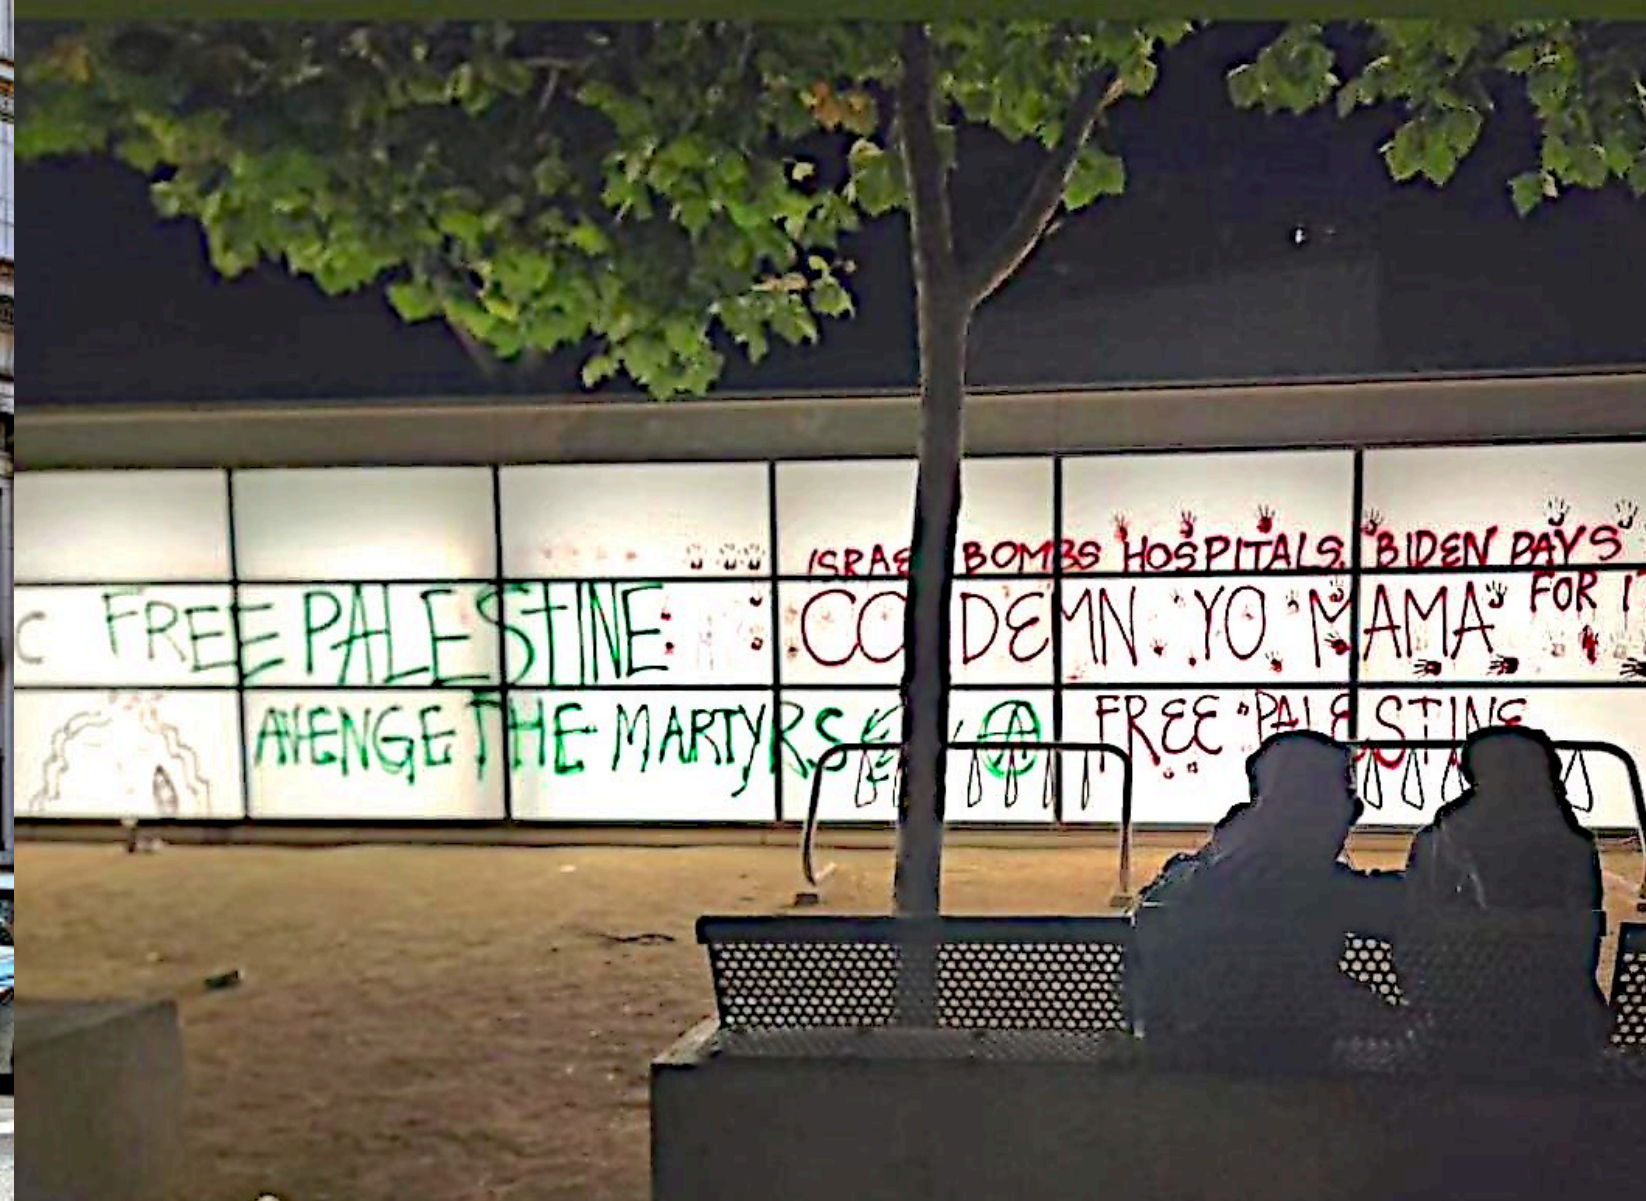 ISRAE BOMBS HOSPITALS. BIDEN PAYS
FOR IT
FREE PALESTINE
CONDEMN YO MAMA
AVENGE THE MARTYRS
FREE PALESTINE